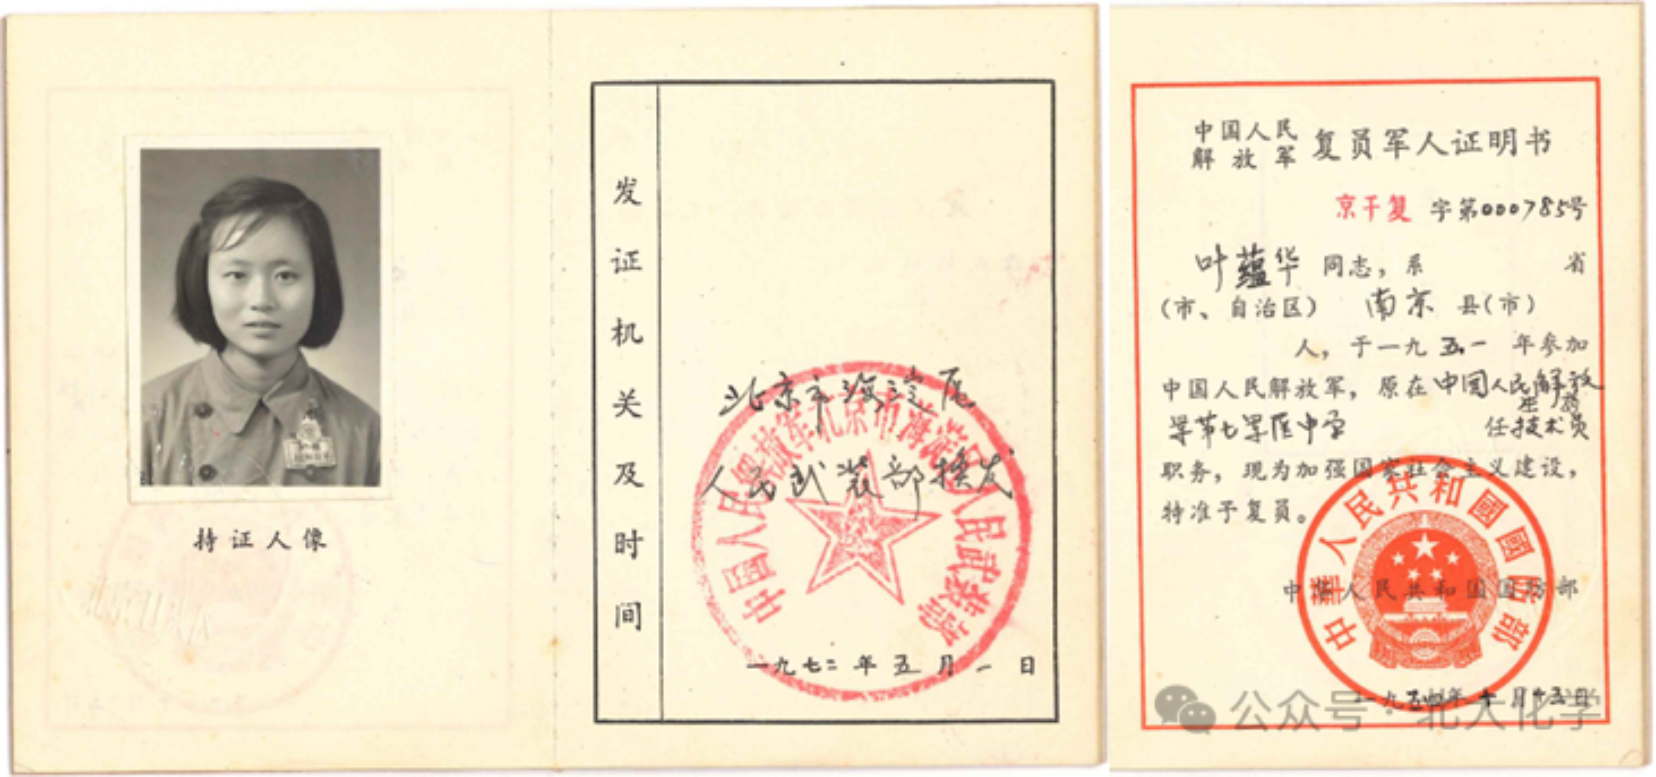 持证人像
发证机关及时间
北京市海淀区
人民武装部换发
中国人民解放军北京市海淀区人民武装部
一九七二年五月一日
中国人民解放军 复员军人证明书
京干复 字第000785号
叶蕴华 同志，系 省
（市、自治区） 南京 县（市）
人，于一九五一年参加
中国人民解放军，原在中国人民解放
军第七军医中学 任技术员
职务，现为加强国家社会主义建设，
特准予复员。
中华人民共和国国防部
中华人民共和国国防部
一九五四年十月十五日
公众号·北大化学